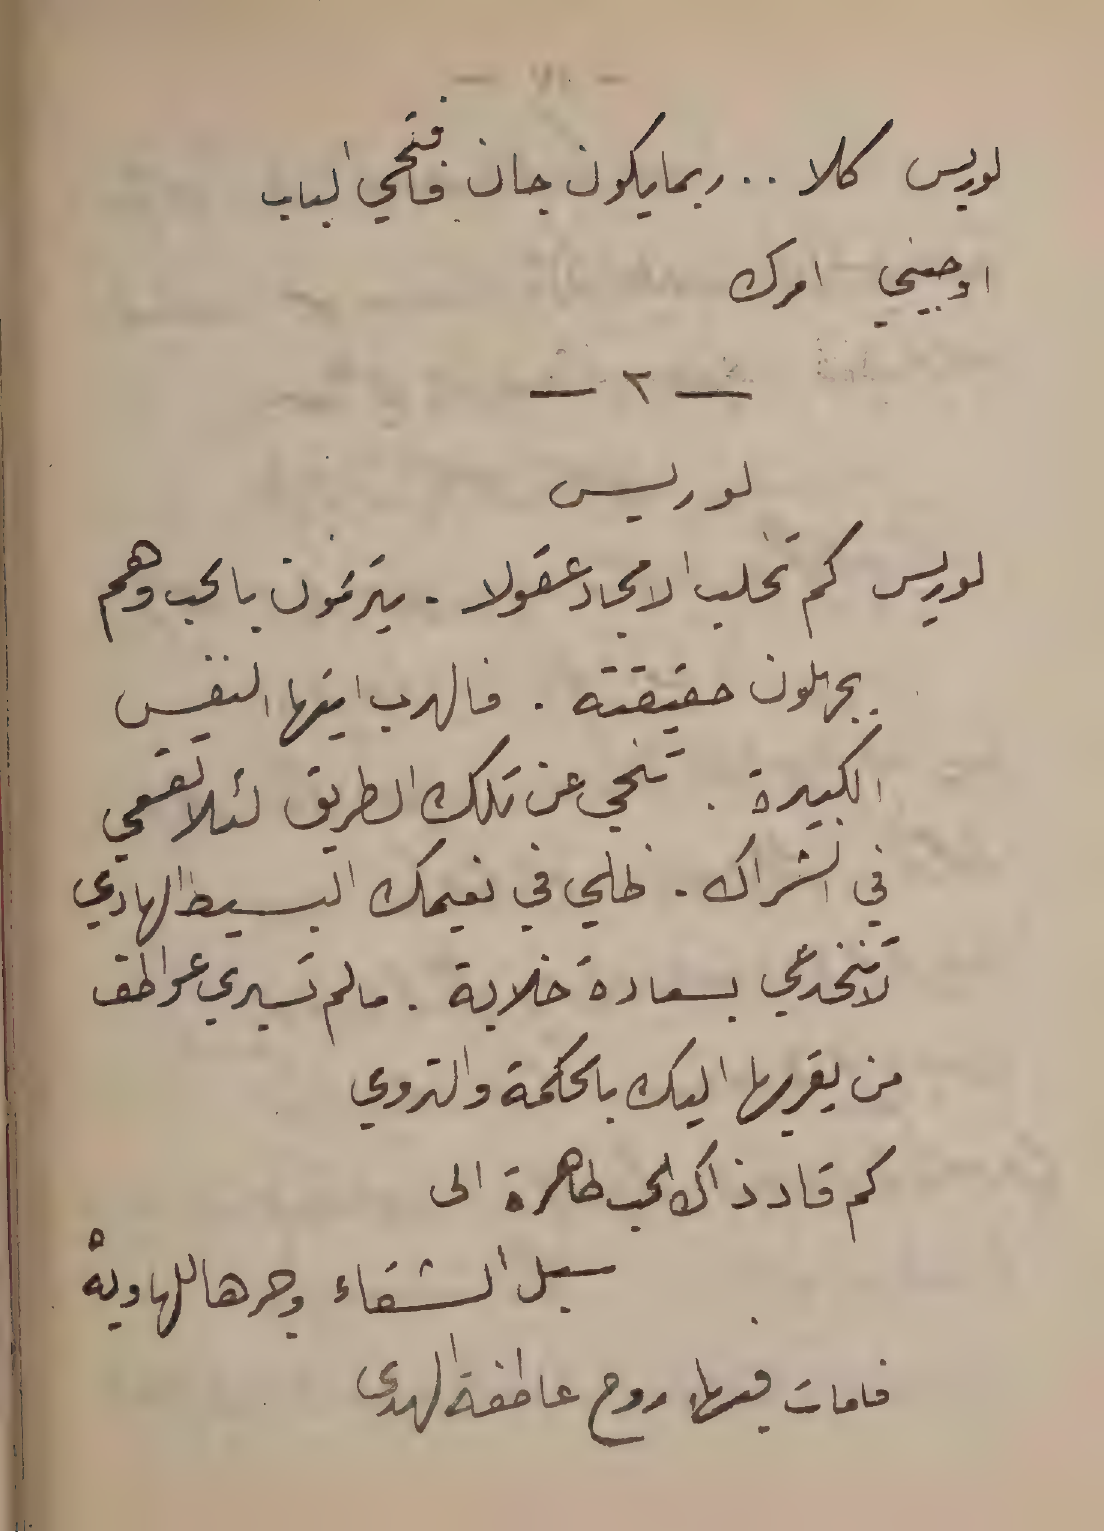 لوريس كلا .. ربما يكون جان فافتحي الباب
اوجيني امرك
— ٢ —
لوريس
لوريس كم تخلب الامجاد عقولا . يترنمون بالحب وهم
يجهلون حقيقته . فالهرب ايتها النفس
الكبيرة . تنحي عن تلك الطريق لئلا تقعي
في الشراك . ظلي في نعيمك البسيط الهادي
لا تنخدعي بسعادة خلابة . مالم تسيري عواطف
من يقربها اليك بالحكمة والتروي
كم قاد ذاك الحب طاهرة الى
سبل الشقاء وجرها للهاوية
فامات فيها روح عاطفة الهدى